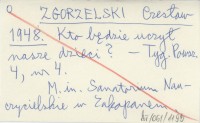 ZGORZELSKI Czesław
1948. Kto będzie uczył
nasze dzieci? – Tyg. Powsz.
4, nr 4.
M. in. Sanatorium Nau-
czycielskie w Zakopanem.